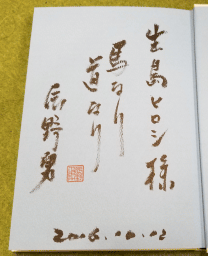 出島ヒロシ様
馬なり
道なり
辰野勇
2016.10.12